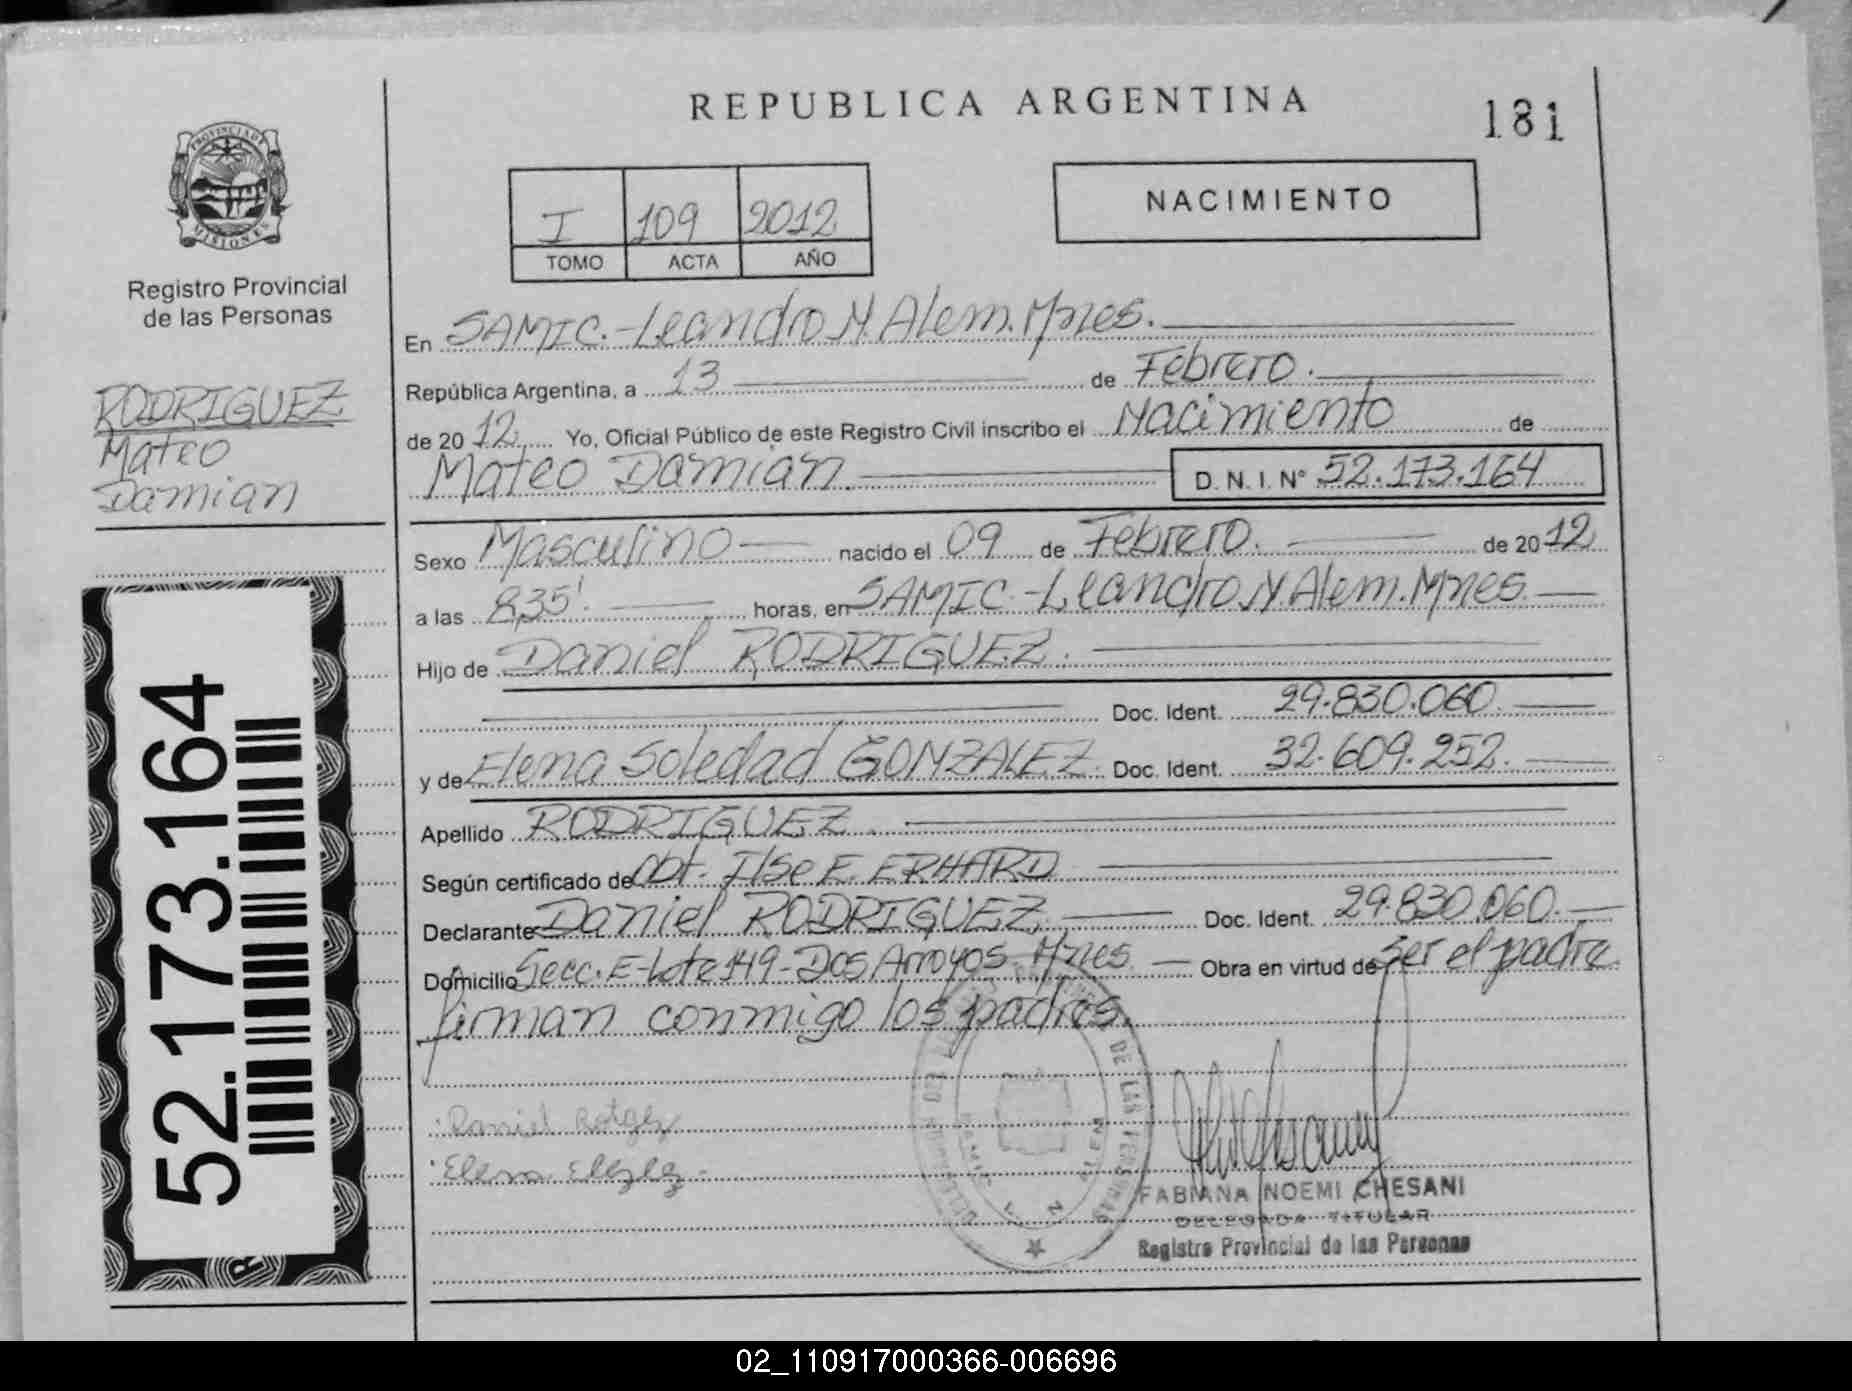 REPUBLICA ARGENTINA
181
PROVINCIA DE
MISIONES
Registro Provincial
de las Personas
I 109 2012
TOMO ACTA AÑO
NACIMIENTO
RODRIGUEZ
Mateo
Damian
En SAMIC.-Leandro N. Alem. Mnes.
República Argentina, a 13 de Febrero.
de 2012 Yo, Oficial Público de este Registro Civil inscribo el Nacimiento de
Mateo Damian. D. N. I. N° 52.173.164
Sexo Masculino nacido el 09 de Febrero. de 2012
a las 8,35'. horas, en SAMIC.-Leandro N. Alem. Mnes.
Hijo de Daniel RODRIGUEZ.
Doc. Ident. 29.830.060.
y de Elena Soledad GONZALEZ. Doc. Ident. 32.609.252.
Apellido RODRIGUEZ.
Según certificado de Obt. Ilse E. ERHARD
Declarante Daniel RODRIGUEZ. Doc. Ident. 29.830.060.
Domicilio Secc. E-Lote 149-Dos Arroyos. Mnes. Obra en virtud de ser el padre
firman conmigo los padres.
52.173.164
Daniel
Elena
DE LAS PERSONAS
FABIANA NOEMI CHESANI
DELEGADA TITULAR
Registro Provincial de las Personas
02_110917000366-006696